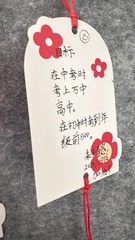 目标:
在中考时
考上万中
高中。
在初中时考到年
级前500。